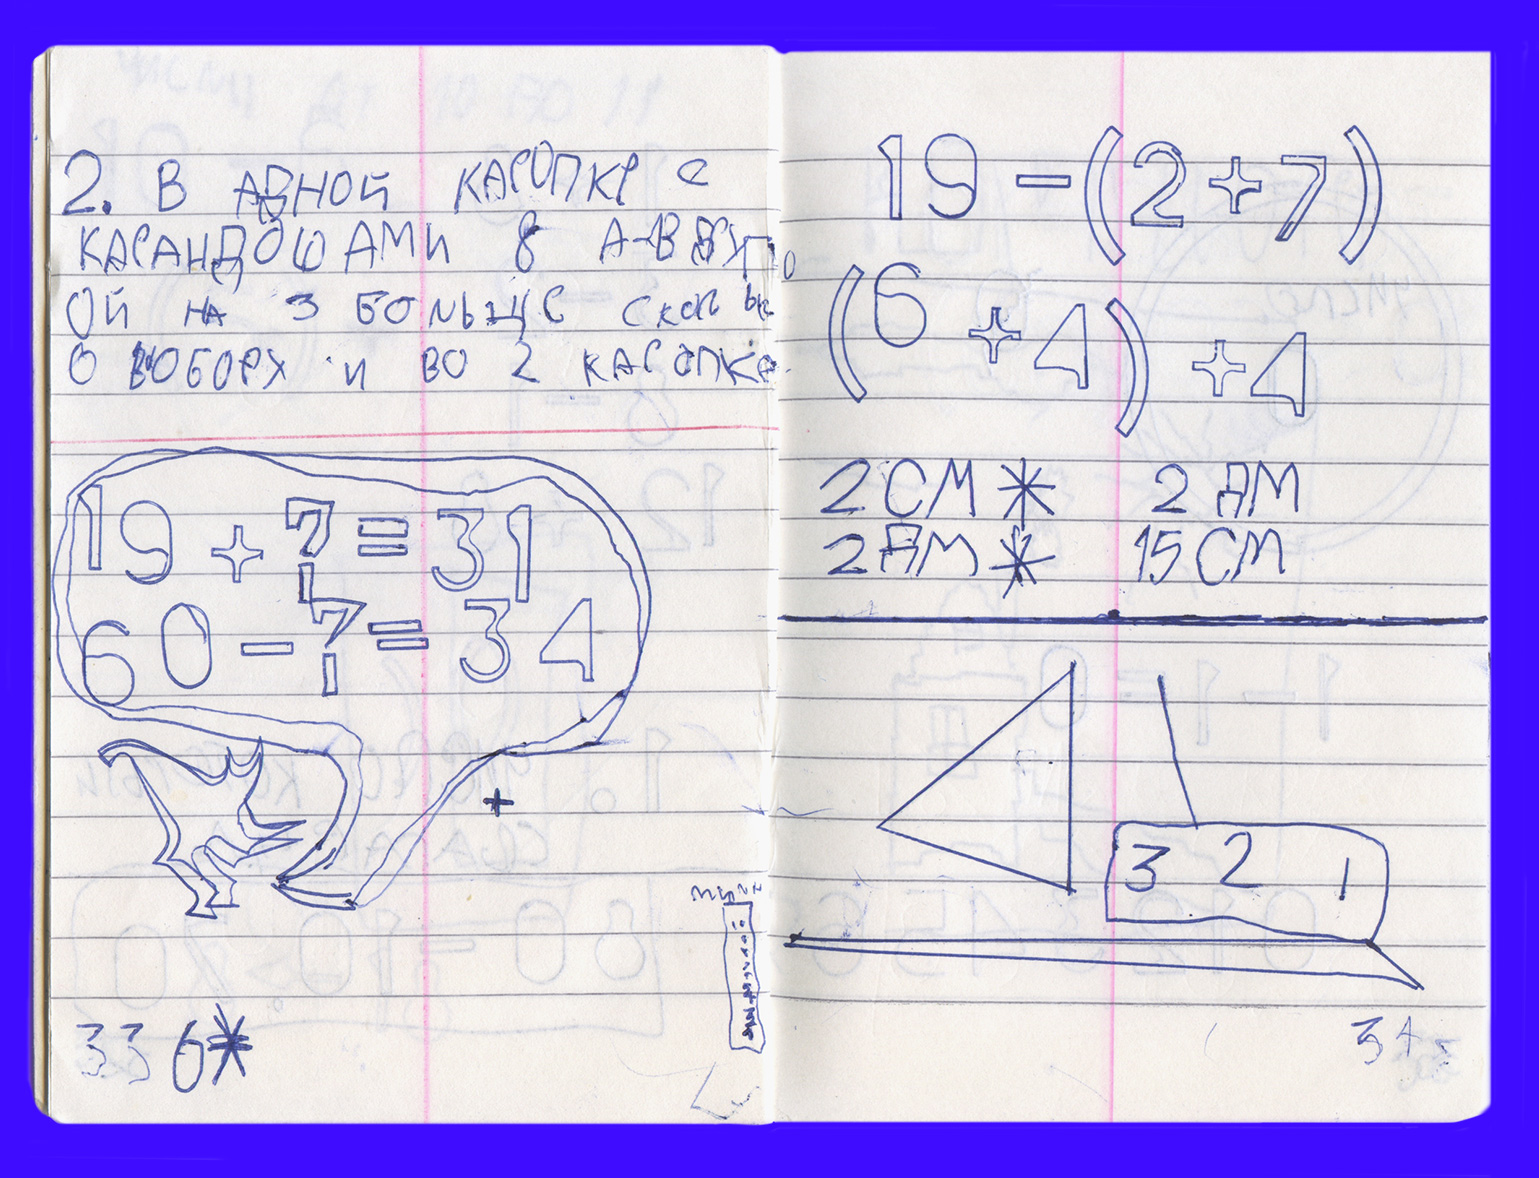 2. В АДНОЙ КАРОПКЕ С
КАРАНДОШАМИ 8 А-В ДРУГ
ОЙ НА 3 БОЛЬЩЕ СКОЛЬК
О ВОБОРХ И ВО 2 КАРОПКЕ
19 + ? = 31
60 - ? = 34
+
33 6*
19 - (2 + 7)
(6 + 4) + 4
2 СМ * 2 ДМ
2 ДМ * 15 СМ
3 2 1
34